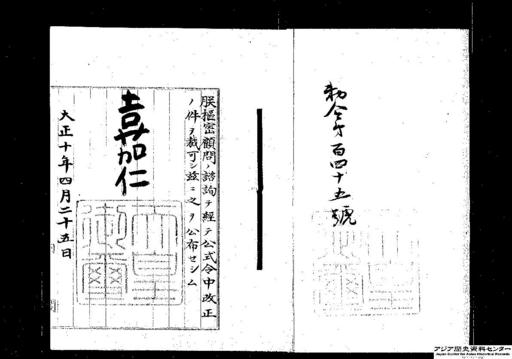 勅令第百四十五號
朕樞密顧問ノ諮詢ヲ経テ公式令中改正
ノ件ヲ裁可シ玆ニ之ヲ公布セシム
嘉仁
天皇御璽
大正十年四月二十五日
アジア歴史資料センター
Japan Center for Asian Historical Records